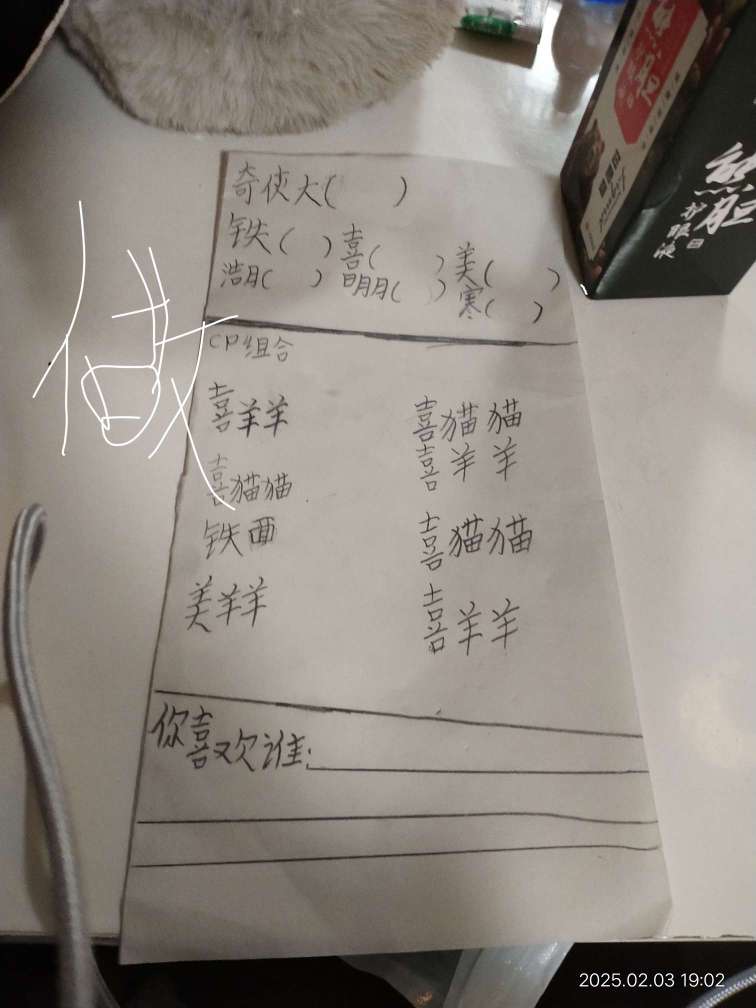 奇侠大( )
铁( ) 喜( ) 美( )
浩月( ) 明月( ) 寒( )
CP组合
喜羊羊 喜猫猫
喜羊羊
喜猫猫
铁面 喜猫猫
美羊羊 喜羊羊
你喜欢谁:
做
熊胆
护眼液
2025.02.03 19:02